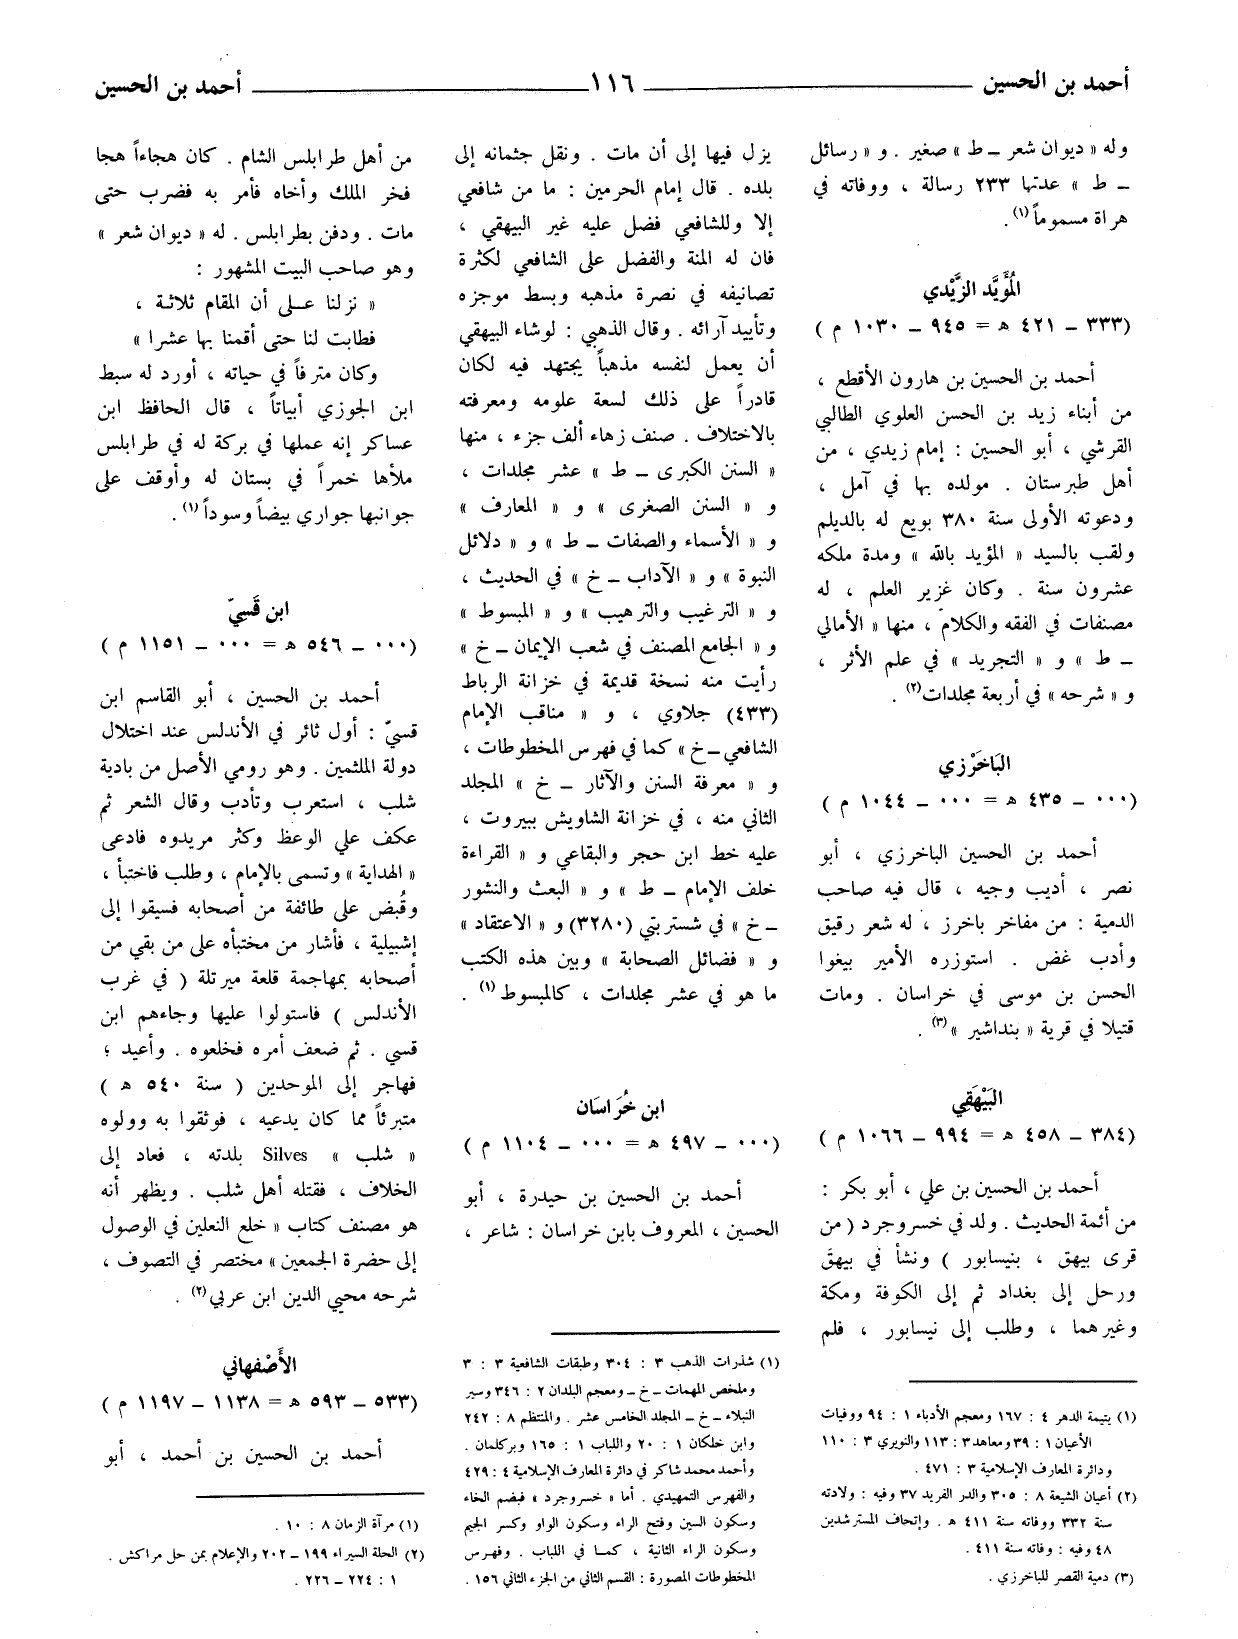 أحمد بن الحسين ١١٦ أحمد بن الحسين
وله « ديوان شعر ــ ط » صغير . و « رسائل
ــ ط » عدتها ٢٣٣ رسالة ، ووفاته في
هراة مسموماً (١).
المُؤَيَّد الزَّيْدي
(٣٣٣ ــ ٤٢١ ه = ٩٤٥ ــ ١٠٣٠ م )
أحمد بن الحسين بن هارون الأقطع ،
من أبناء زيد بن الحسن العلوي الطالبي
القرشي ، أبو الحسين : إمام زيدي ، من
أهل طبرستان . مولده بها في آمل ،
ودعوته الأولى سنة ٣٨٠ بويع له بالديلم
ولقب بالسيد « المؤيد بالله » ومدة ملكه
عشرون سنة . وكان غزير العلم ، له
مصنفات في الفقه والكلام ، منها « الأمالي
ــ ط » و « التجريد » في علم الأثر ،
و « شرحه » في أربعة مجلدات(٢) .
البَاخَرْزي
(٠٠٠ ــ ٤٣٥ ه = ٠٠٠ ــ ١٠٤٤ م )
أحمد بن الحسين الباخرزي ، أبو
نصر ، أديب وجيه ، قال فيه صاحب
الدمية : من مفاخر باخرز ، له شعر رقيق
وأدب غض . استوزره الأمير بيغوا
الحسن بن موسى في خراسان . ومات
قتيلا في قرية « بنداشير »(٣) .
البَيْهَقي
(٣٨٤ ــ ٤٥٨ ه = ٩٩٤ ــ ١٠٦٦ م )
أحمد بن الحسين بن علي ، أبو بكر :
من أئمة الحديث . ولد في خسروجرد ( من
قرى بيهق ، بنيسابور ) ونشأ في بيهق
ورحل إلى بغداد ثم إلى الكوفة ومكة
وغيرهما ، وطلب إلى نيسابور ، فلم
(١) يتيمة الدهر ٤ : ١٦٧ ومعجم الأدباء ١ : ٩٤ ووفيات
الأعيان ١ : ٣٩ ومعاهد ٣ : ١١٣ والنويري ٣ : ١١٠
ودائرة المعارف الإسلامية ٣ : ٤٧١ .
(٢) أعيان الشيعة ٨ : ٣٠٥ والدر الفريد ٣٧ وفيه : ولادته
سنة ٣٣٢ ووفاته سنة ٤١١ ه . وإتحاف المسترشدين
٤٨ وفيه : وفاته سنة ٤١١ .
(٣) دمية القصر للباخرزي .
يزل فيها إلى أن مات . ونقل جثمانه إلى
بلده . قال إمام الحرمين : ما من شافعي
إلا وللشافعي فضل عليه غير البيهقي ،
فان له المنة والفضل على الشافعي لكثرة
تصانيفه في نصرة مذهبه وبسط موجزه
وتأييد آرائه . وقال الذهبي : لوشاء البيهقي
أن يعمل لنفسه مذهباً يجتهد فيه لكان
قادراً على ذلك لسعة علومه ومعرفته
بالاختلاف . صنف زهاء ألف جزء ، منها
« السنن الكبرى ــ ط » عشر مجلدات ،
و « السنن الصغرى » و « المعارف »
و « الأسماء والصفات ــ ط » و « دلائل
النبوة » و « الآداب ــ خ » في الحديث ،
و « الترغيب والترهيب » و « المبسوط »
و « الجامع المصنف في شعب الإيمان ــ خ »
رأيت منه نسخة قديمة في خزانة الرباط
(٤٣٣) جلاوي ، و « مناقب الإمام
الشافعي ــ خ » كما في فهرس المخطوطات ،
و « معرفة السنن والآثار ــ خ » المجلد
الثاني منه ، في خزانة الشاويش ببيروت ،
عليه خط ابن حجر والبقاعي و « القراءة
خلف الإمام ــ ط » و « البعث والنشور
ــ خ » في شستربتي (٣٢٨٠) و « الاعتقاد »
و « فضائل الصحابة » وبين هذه الكتب
ما هو في عشر مجلدات ، كالمبسوط (١) .
ابن خُرَاسَان
(٠٠٠ ــ ٤٩٧ ه = ٠٠٠ ــ ١١٠٤ م )
أحمد بن الحسين بن حيدرة ، أبو
الحسين ، المعروف بابن خراسان : شاعر ،
(١) شذرات الذهب ٣ : ٣٠٤ وطبقات الشافعية ٣ : ٣
وملخص المهمات ــ خ ــ ومعجم البلدان ٢ : ٣٤٦ وسير
النبلاء ــ خ ــ المجلد الخامس عشر . والمنتظم ٨ : ٢٤٢
وابن خلكان ١ : ٢٠ واللباب ١ : ١٦٥ وبركلمان .
وأحمد محمد شاكر في دائرة المعارف الإسلامية ٤ : ٤٢٩
والفهرس التمهيدي . أما « خسروجرد » فبضم الخاء
وسكون السين وفتح الراء وسكون الواو وكسر الجيم
وسكون الراء الثانية ، كما في اللباب . وفهرس
المخطوطات المصورة : القسم الثاني من الجزء الثاني ١٥٦ .
من أهل طرابلس الشام . كان هجاءاً هجا
فخر الملك وأخاه فأمر به فضرب حتى
مات . ودفن بطرابلس . له « ديوان شعر »
وهو صاحب البيت المشهور :
« نزلنا على أن المقام ثلاثة ،
فطابت لنا حتى أقمنا بها عشرا »
وكان مترفاً في حياته ، أورد له سبط
ابن الجوزي أبياتاً ، قال الحافظ ابن
عساكر إنه عملها في بركة له في طرابلس
ملأها خمراً في بستان له وأوقف على
جوانبها جواري بيضاً وسوداً (١) .
ابن قَسِيّ
(٠٠٠ ــ ٥٤٦ ه = ٠٠٠ ــ ١١٥١ م )
أحمد بن الحسين ، أبو القاسم ابن
قسيّ : أول ثائر في الأندلس عند اختلال
دولة الملثمين . وهو رومي الأصل من بادية
شلب ، استعرب وتأدب وقال الشعر ثم
عكف علي الوعظ وكثر مريدوه فادعى
« الهداية » وتسمى بالإمام ، وطلب فاختبأ ،
وقُبض على طائفة من أصحابه فسيقوا إلى
إشبيلية ، فأشار من مختبأه على من بقي من
أصحابه بمهاجمة قلعة ميرتلة ( في غرب
الأندلس ) فاستولوا عليها وجاءهم ابن
قسي . ثم ضعف أمره فخلعوه . وأعيد ؛
فهاجر إلى الموحدين ( سنة ٥٤٠ ه )
متبرئاً مما كان يدعيه ، فوثقوا به وولوه
« شلب » Silves بلدته ، فعاد إلى
الخلاف ، فقتله أهل شلب . ويظهر أنه
هو مصنف كتاب « خلع النعلين في الوصول
إلى حضرة الجمعين » مختصر في التصوف ،
شرحه محيي الدين ابن عربي(٢) .
الأَصْفهاني
(٥٣٣ ــ ٥٩٣ ه = ١١٣٨ ــ ١١٩٧ م )
أحمد بن الحسين بن أحمد ، أبو
(١) مرآة الزمان ٨ : ١٠ .
(٢) الحلة السيراء ١٩٩ ــ ٢٠٢ والإعلام بمن حل مراكش .
١ : ٢٢٤ ــ ٢٢٦ .